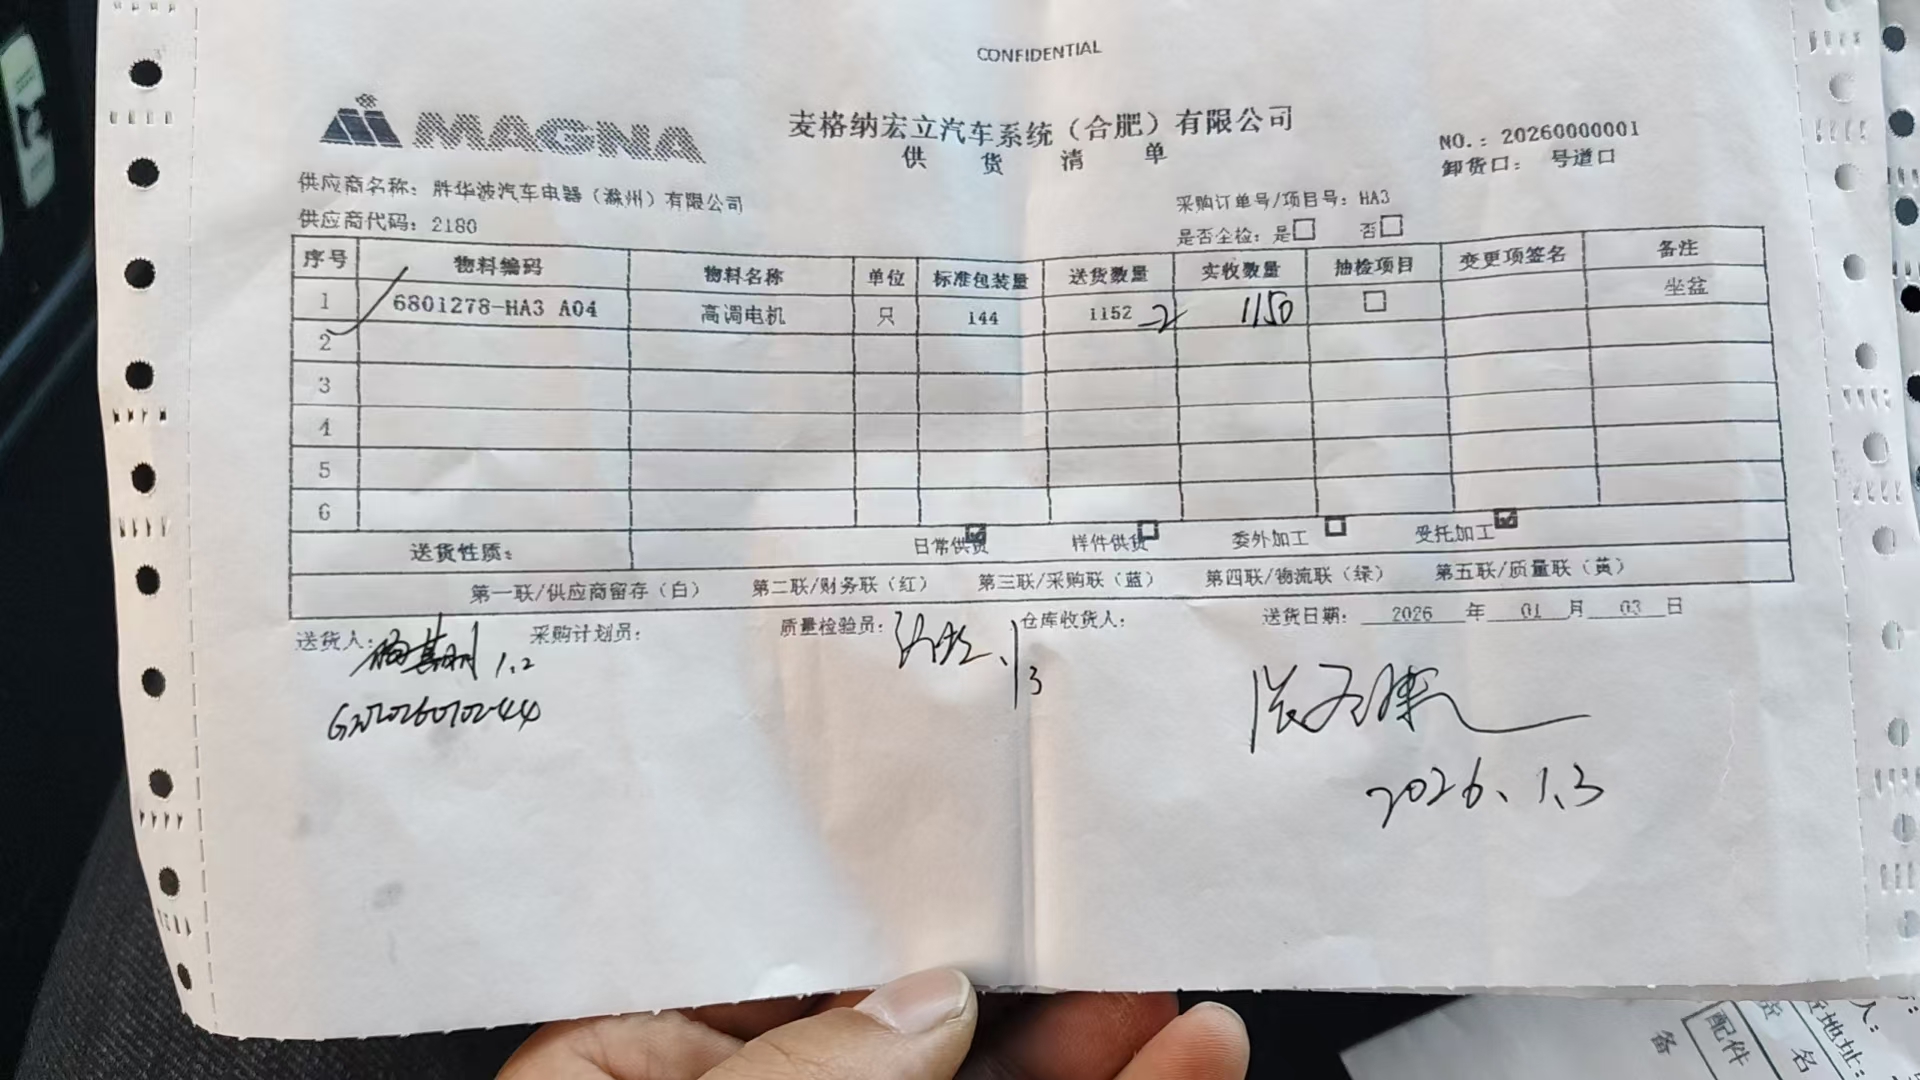 CONFIDENTIAL
MAGNA
麦格纳宏立汽车系统（合肥）有限公司
供 货 清 单
NO.：20260000001
卸货口： 号道口
供应商名称：胜华波汽车电器（滁州）有限公司
采购订单号/项目号：HA3
供应商代码：2180
是否全检：是□ 否□
序号 物料编码 物料名称 单位 标准包装量 送货数量 实收数量 抽检项目 变更项签名 备注
1 6801278-HA3 A04 高调电机 只 144 1152 -2 1150 □ 坐盆
2
3
4
5
6
送货性质： 日常供货☑ 样件供货□ 委外加工□ 受托加工☑
第一联/供应商留存（白） 第二联/财务联（红） 第三联/采购联（蓝） 第四联/物流联（绿） 第五联/质量联（黄）
送货人： 1.2 采购计划员： 质量检验员： 1/3 仓库收货人： 送货日期： 2026 年 01 月 03 日
2026.1.3
配件
名
地址：
备